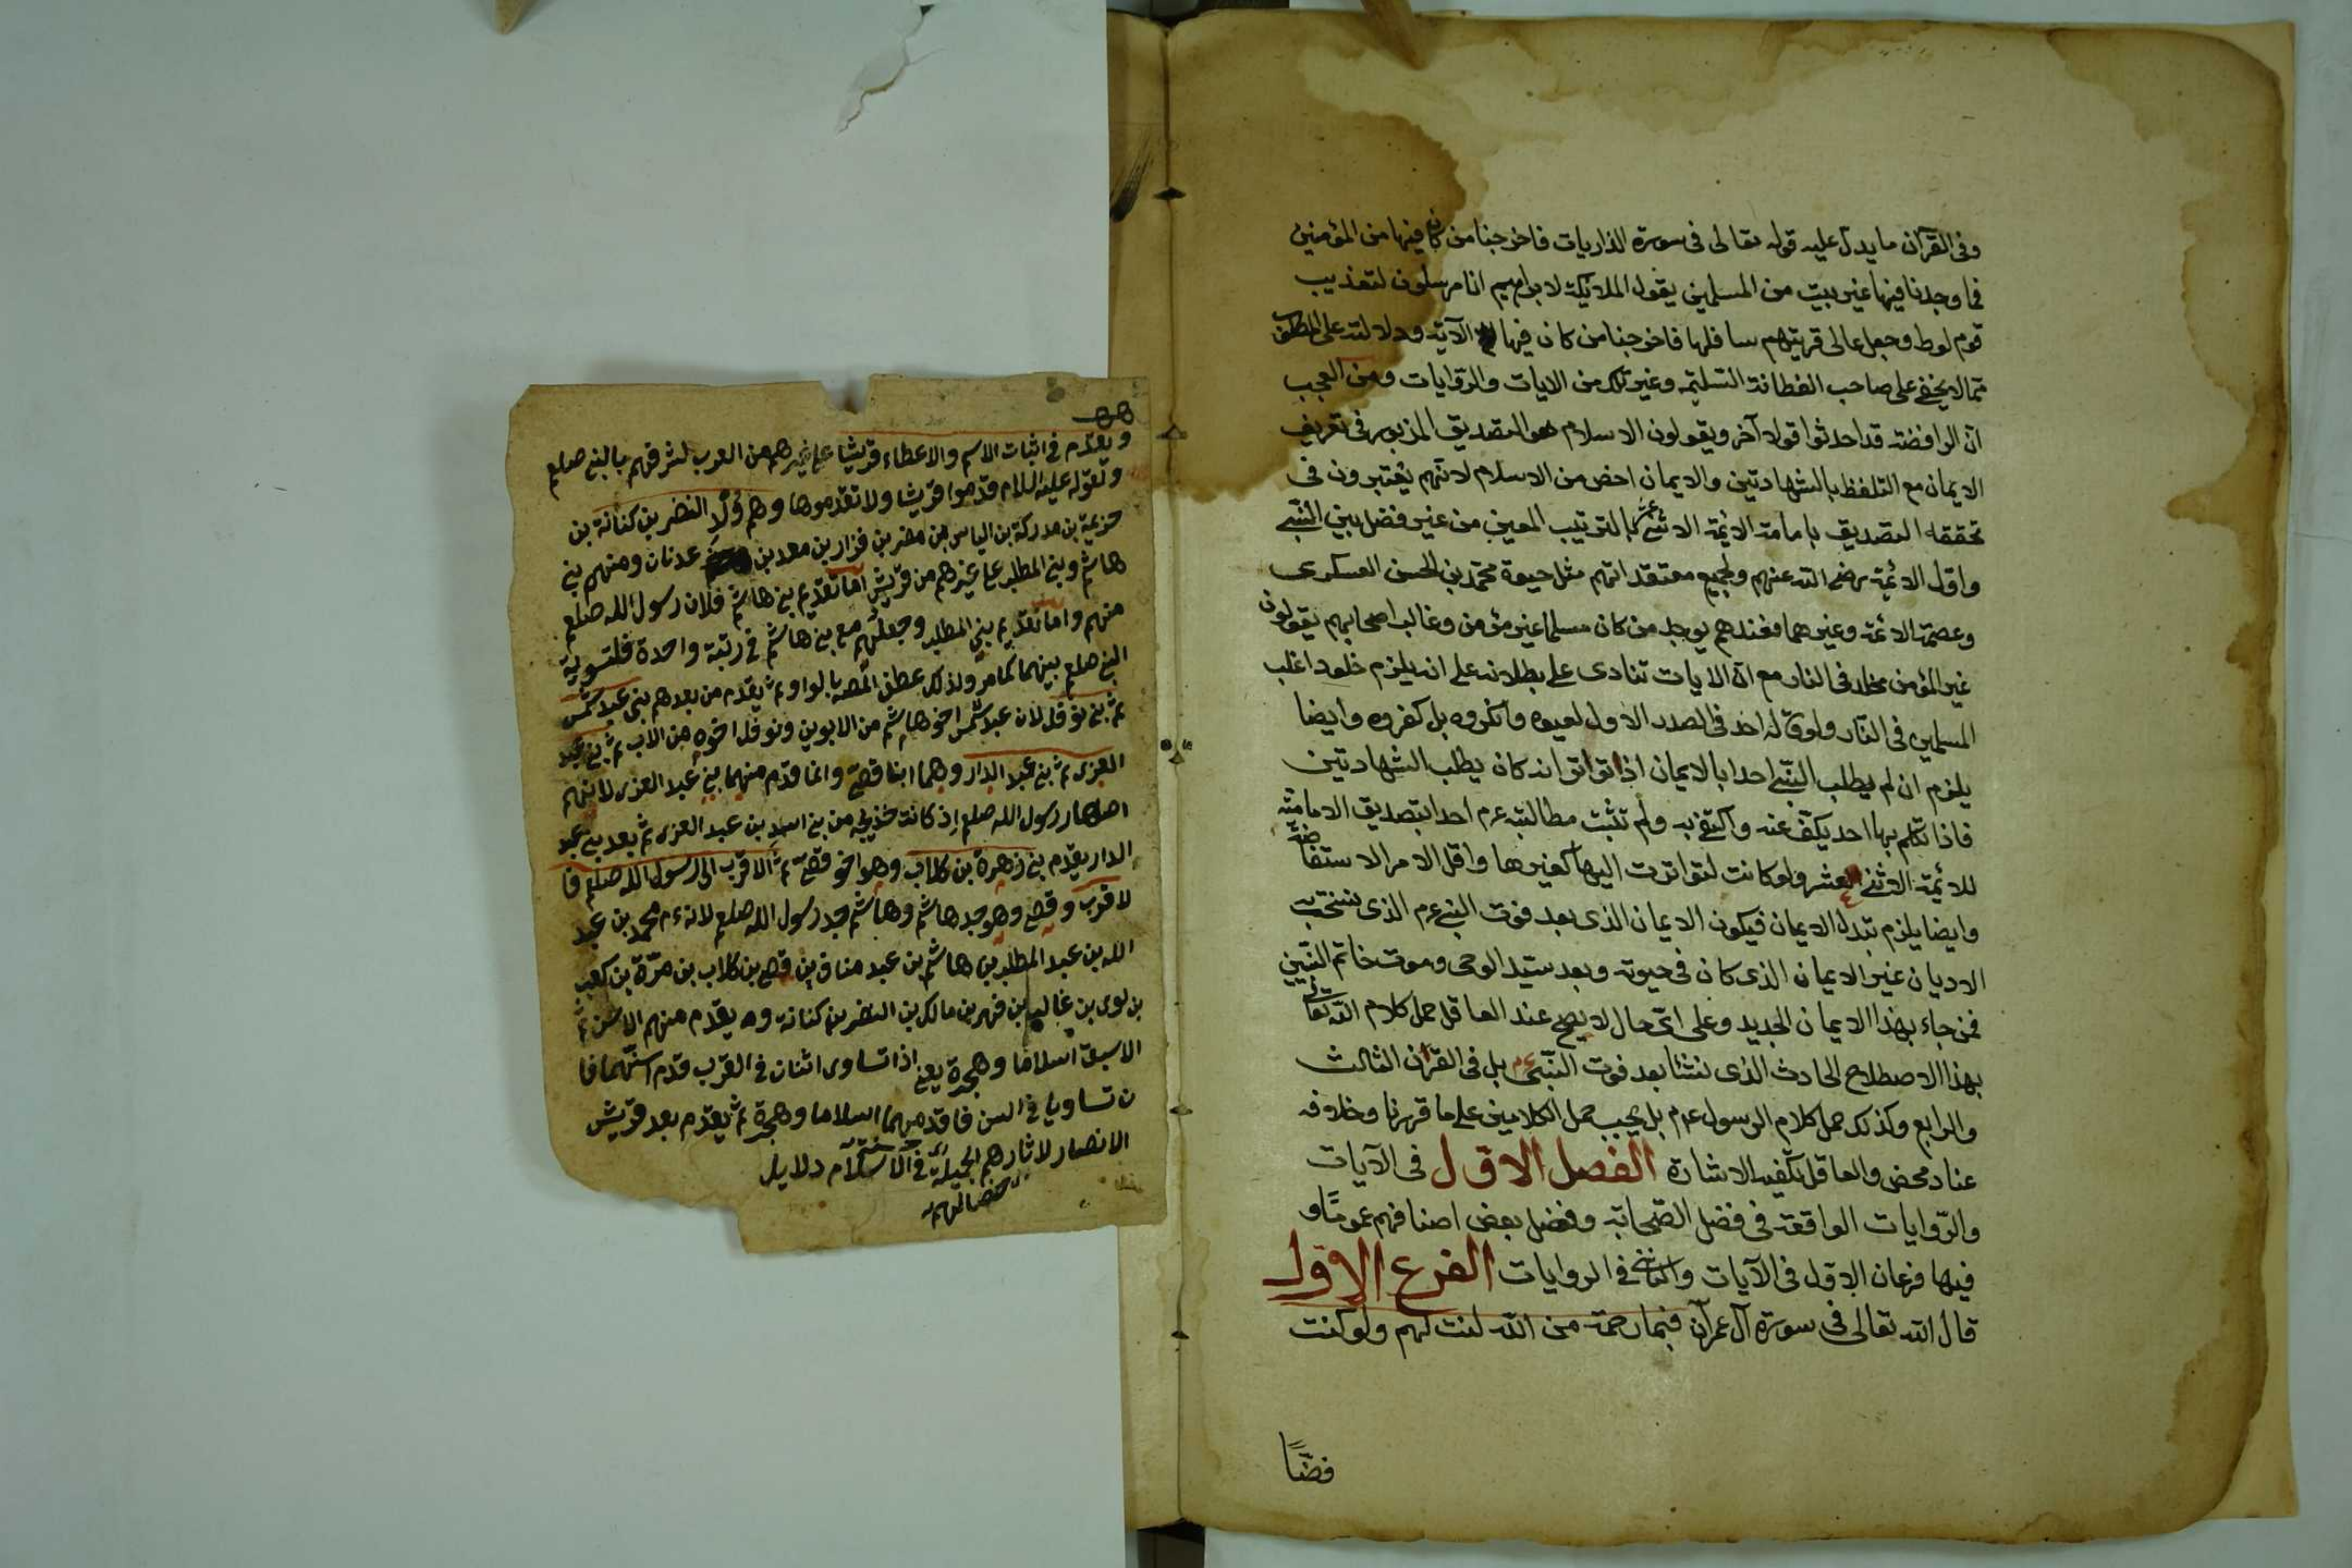 وفى القرآن ما يدل عليه قوله تعالى فى سورة الذاريات فاخرجنا من كان فيها من المؤمنين
فما وجدنا فيها غير بيت من المسلمين يقول الملائكة لابراهيم انا مرسلون لتعذيب
قوم لوط وجعل عالى قريتهم سافلها فاخرجنا من كان فيها الآية ودلالته على المطلوب
مما لا يخفى على صاحب الفطانة السليمة وغير ذلك من الايات والروايات ومن العجب
ان الرافضة قد احدثوا قولا آخر ويقولون الاسلام هو التصديق المزبور فى تعريف
الايمان مع التلفظ بالشهادتين والايمان اخص من الاسلام لانهم يعتبرون فى
تحققه التصديق بامامة الائمة الاثنى عشر بالترتيب المعين من غير فصل بين النبى
واول الائمة رضى الله عنهم ولجميع معتقداتهم مثل حيوة محمد بن الحسن العسكرى
وعصمة الائمة وغيرهما فعندهم يوجد من كان مسلما غير مؤمن وغالب اصحابهم يقولون
غير المؤمن مخلد فى النار مع ان الايات تنادى على بطلانه على انه يلزم خلود اغلب
المسلمين فى النار ولو قاله احد فى الصدر الاول لعيبوه وانكروه بل كفروه وايضا
يلزم ان لم يطلب النبى احدا بالايمان اذ تواتر انه كان يطلب الشهادتين
فاذا تكلم بهما احد يكف عنه واكتفى به ولم تثبت مطالبته عم احدا بتصديق الامامة
للائمة الاثنى عشر ولو كانت لتواترت الينا كغيرها واقل الامر الاستفاضة
وايضا يلزم تبدل الايمان فيكون الايمان الذى بعد فوت النبى عم الذى نسخ به
الاديان غير الايمان الذى كان فى حيوته وبعد ستيد الوحى وموت خاتم النبيين
فمن جاء بهذا الايمان الجديد وعلى اى حال لا يصح عند العاقل حمل كلام الله تعالى
بهذا الاصطلاح الحادث الذى نشئا بعد فوت النبى عم بل فى القرآن الثالث
والرابع وكذلك حمل كلام الرسول عم بل يجب حمل الكلامين على ما قررنا وخلافه
عناد محض والعاقل تكفيه الاشارة الفصل الاول فى الآيات
والروايات الواقعة فى فضل الصحابة وفضل بعض اصنافهم عموما و
فيها فرعان الاول فى الآيات والثانى فى الروايات الفرع الاول
قال الله تعالى فى سورة آل عمران فبما رحمة من الله لنت لهم ولو كنت
فضا
ويقدم فى اثبات الاسم والاعطاء قريشا على غيرهم من العرب لشرفهم بالنبى صلعم
ولقوله عليه السلام قدموا قريشا ولا تقدموها وهم ولد النضر بن كنانة بن
خزيمة بن مدركة بن الياس بن مضر بن نزار بن معد بن عدنان ومنهم بنى
هاشم وبنى المطلب على غيرهم من قريش اما تقديم بنى هاشم فلان رسول الله صلعم
منهم واما تقديم بنى المطلب وجعلهم مع بنى هاشم فى رتبة واحدة فلتسوية
النبى صلعم بينهما كما مر ولذلك عطف المصه بالواو ثم يقدم من بعدهم بنى عبد شمس
ثم بنى نوفل لان عبد شمس اخو هاشم من الابوين ونوفل اخوه من الاب ثم بنى عبد
العزى ثم بنى عبد الدار وهما ابنا قصى وانما قدم منهما بنى عبد العزى لانهم
اصهار رسول الله صلعم اذ كانت خديجه من بنى اسد بن عبد العزى ثم بعد بنى عبد
الدار يقدم بنى زهرة بن كلاب وهو اخو قصى ثم الاقرب الى رسول الله صلعم فا
لاقرب وقصى وهو جد هاشم وهاشم جد رسول الله صلعم لانه عم محمد بن عبد
الله بن عبد المطلب بن هاشم بن عبد مناف بن قصى بن كلاب بن مرة بن كعب
بن لوى بن غالب بن فهر بن مالك بن النضر بن كنانة ومه يقدم منهم الاسن ثم
الاسبق اسلاما وهجرة يعنى اذا تساوى اثنان فى القرب قدم اسنهما فا
ن تساويا فى السن فاقدمهما اسلاما وهجرة ثم يقدم بعد قريش
الانصار لاثارهم الجميلة فى الاسلام دلايل